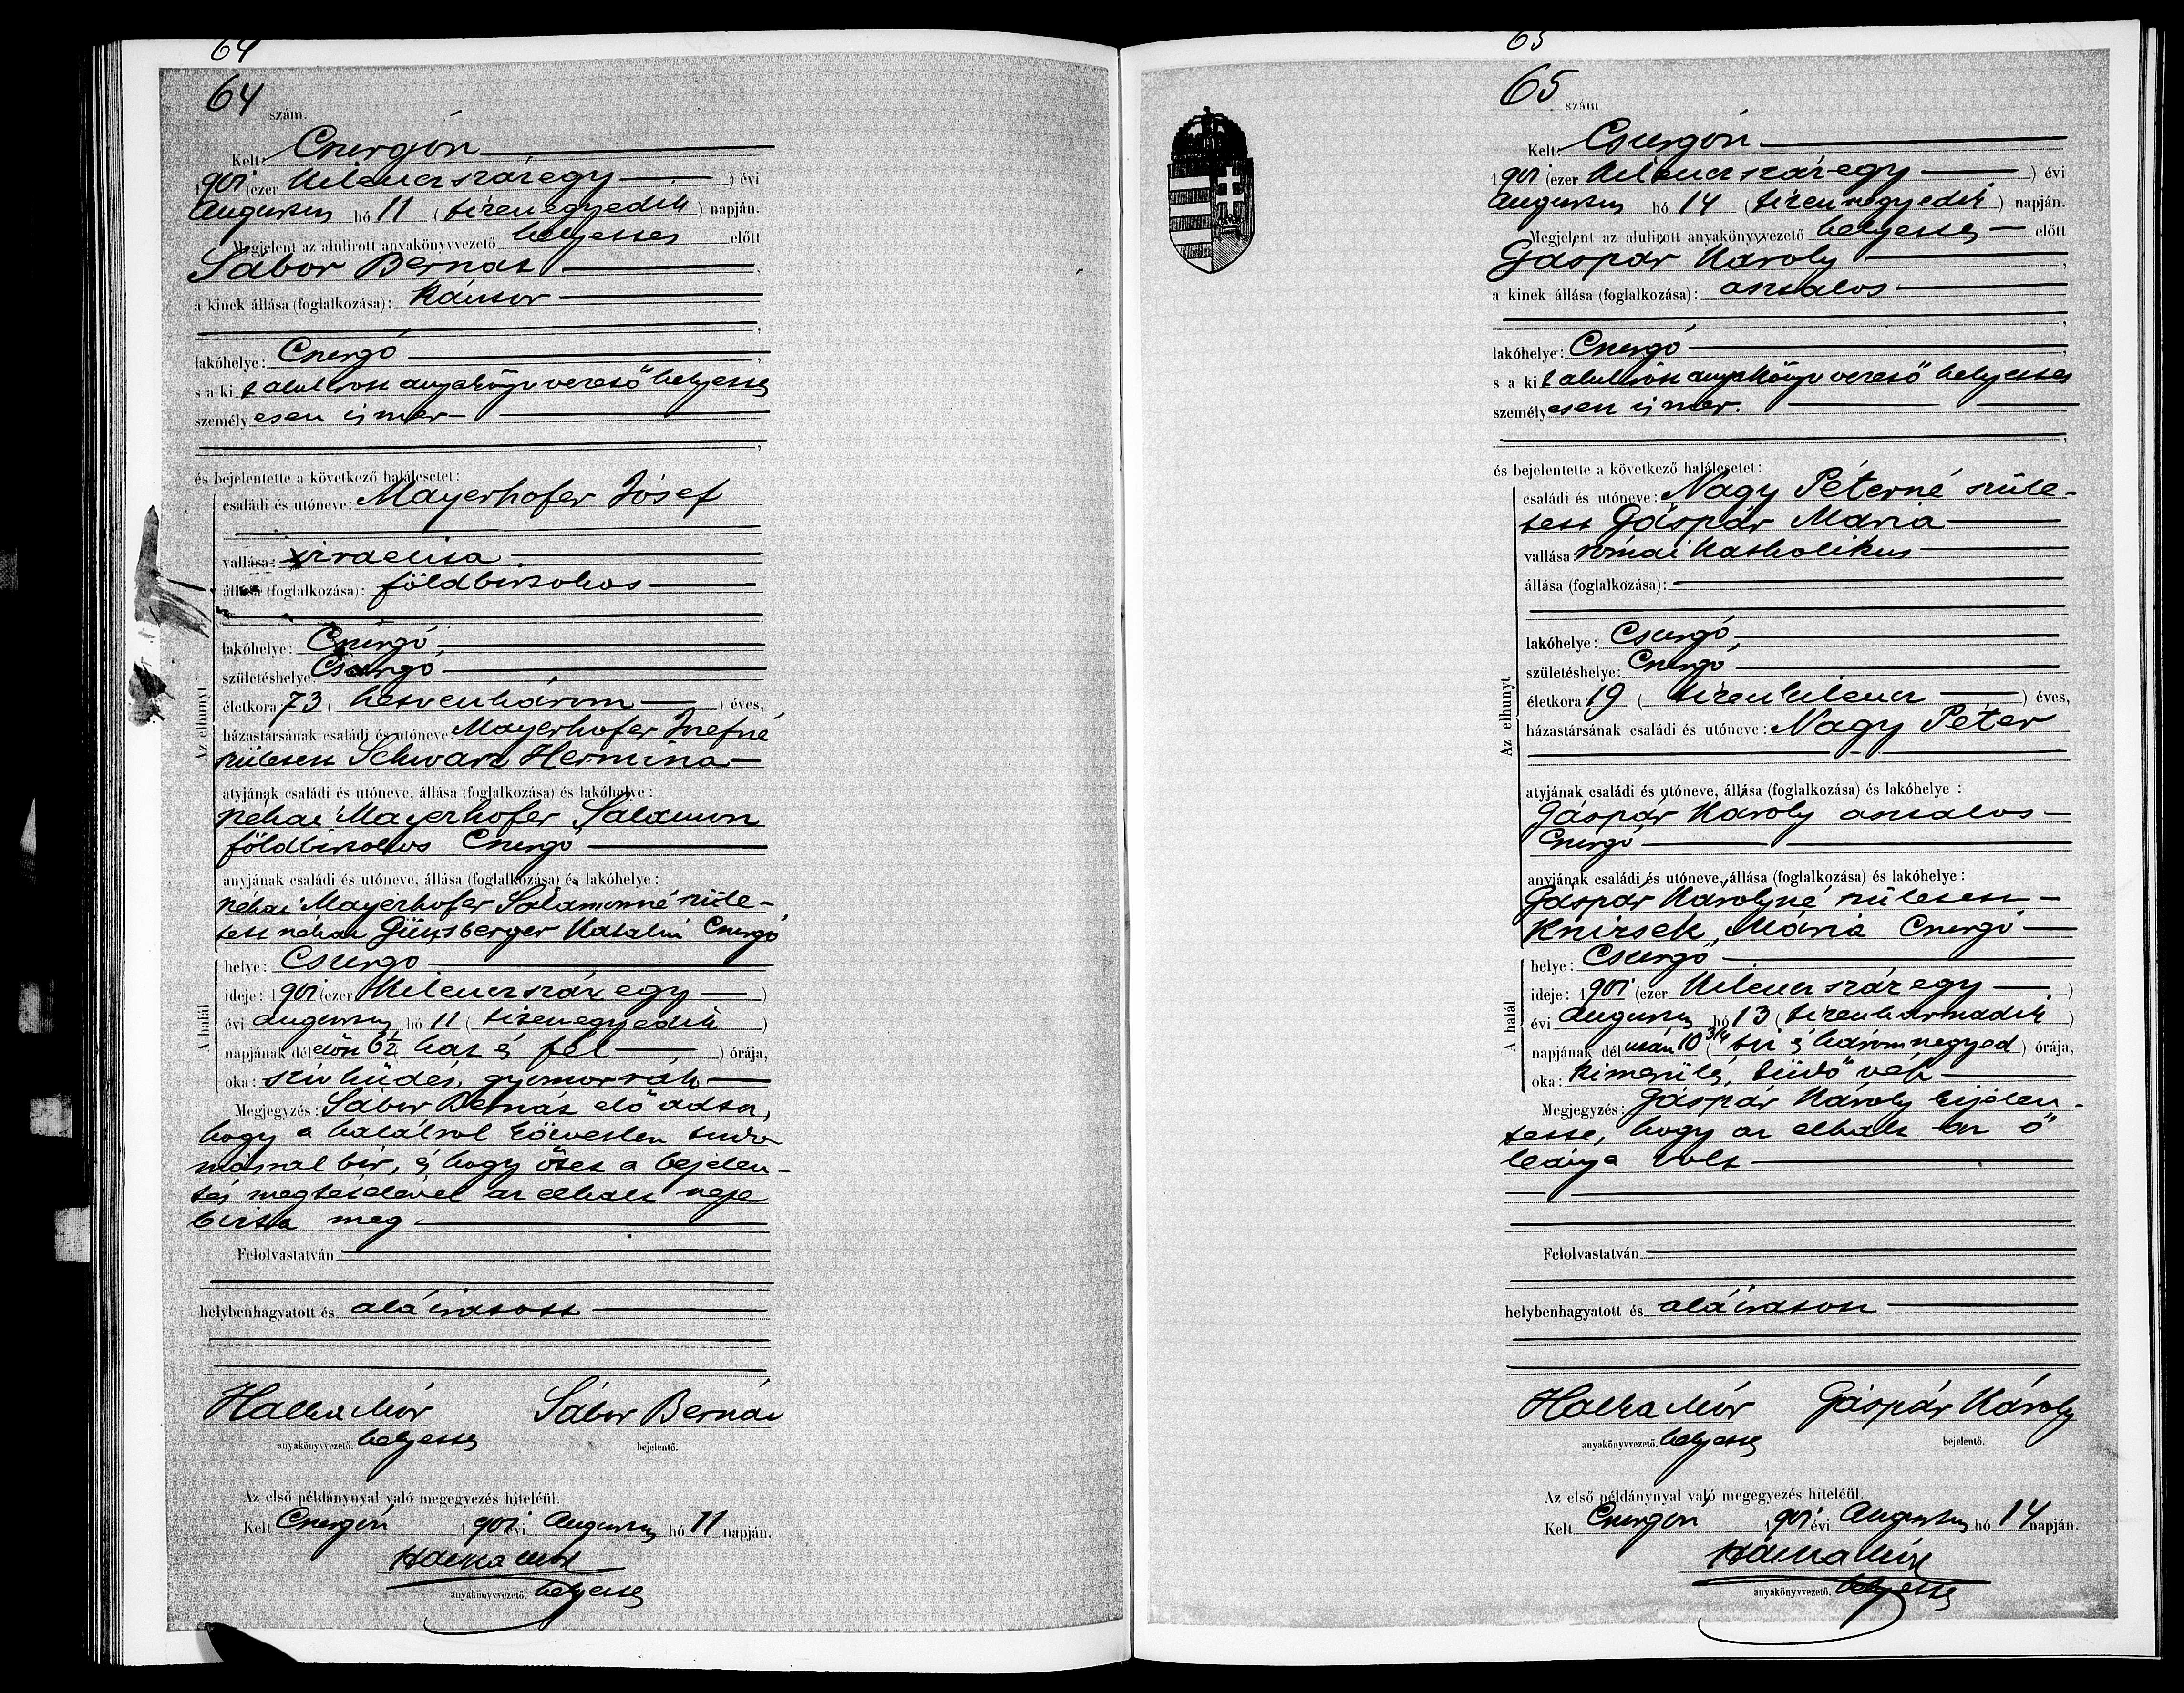 64
64 szám.
Kelt: Csurgón
1901 (ezer kilenczszázegy) évi
Augusztus hó 11 (tizenegyedik) napján.
Megjelent az alulirott anyakönyvvezető helyettes előtt
Sábor Bernát,
a kinek állása (foglalkozása): kántor
,
lakóhelye: Csurgó,
s a kit alulirott anyakönyvvezető helyettes
személyesen ismer
,
és bejelentette a következő halálesetet:
Az elhunyt
családi és utóneve: Mayerhofer József
vallása: izraelita
állása (foglalkozása): földbirtokos
lakóhelye: Csurgó,
születéshelye: Csurgó
életkora 73 (hetvenhárom) éves,
házastársának családi és utóneve: Mayerhofer Józsefné
született Schwarz Hermina
atyjának családi és utóneve, állása (foglalkozása) és lakóhelye:
néhai Mayerhofer Salamon
földbirtokos Csurgó
anyjának családi és utóneve, állása (foglalkozása) és lakóhelye:
néhai Mayerhofer Salamonné szüle-
tett néhai Günsberger Katalin Csurgó
A halál
helye: Csurgó
ideje: 1901 (ezer kilenczszáz egy)
évi augusztus hó 11 (tizenegyedik)
napjának délelőtt 6½ hat és fél) órája,
oka: szivhüdés, gyomorrák
Megjegyzés: Sábor Bernát előadta,
hogy a halálról közvetlen tudo
mással bir, és hogy őtet a bejelen-
tés megtételével az elhalt neje
bizta meg
Felolvastatván
helybenhagyatott és aláiratott
Halka Mór Sábor Bernát
anyakönyvvezető. helyettes bejelentő.
Az első példánynyal való megegyezés hiteléül.
Kelt Csurgón 1901 évi Augusztus hó 11 napján.
Halka Mór
anyakönyvvezető. helyettes
65
65 szám
Kelt: Csurgón
1901 (ezer kilenczszázegy) évi
Augusztus hó 14 (tizennegyedik) napján.
Megjelent az alulirott anyakönyvvezető helyettes előtt
Gáspár Károly,
a kinek állása (foglalkozása): asztalos
,
lakóhelye: Csurgó,
s a kit alulirott anyakönyvvezető helyettes
személyesen ismer.
,
és bejelentette a következő halálesetet:
Az elhunyt
családi és utóneve: Nagy Péterné szüle-
tett Gáspár Mária
vallása: római katholikus
állása (foglalkozása):
lakóhelye: Csurgó,
születéshelye: Csurgó
életkora 19 (tizenkilencz) éves,
házastársának családi és utóneve: Nagy Péter
atyjának családi és utóneve, állása (foglalkozása) és lakóhelye:
Gáspár Károly asztalos
Csurgó
anyjának családi és utóneve, állása (foglalkozása) és lakóhelye:
Gáspár Károlyné született
Knizsek Mária Csurgó
A halál
helye: Csurgó
ideje: 1901 (ezer kilenczszáz egy)
évi augusztus hó 13 (tizenharmadik)
napjának délután 10¾ (tiz és háromnegyed) órája,
oka: kimerülés, tüdővész
Megjegyzés: Gáspár Károly bejelen-
tette, hogy az elhalt az ő
leánya volt
Felolvastatván
helybenhagyatott és aláiratott
Halka Mór Gáspár Károly
anyakönyvvezető. helyettes bejelentő.
Az első példánynyal való megegyezés hiteléül.
Kelt Csurgón 1901 évi Augusztus hó 14 napján.
Halka Mór
anyakönyvvezető. helyettes